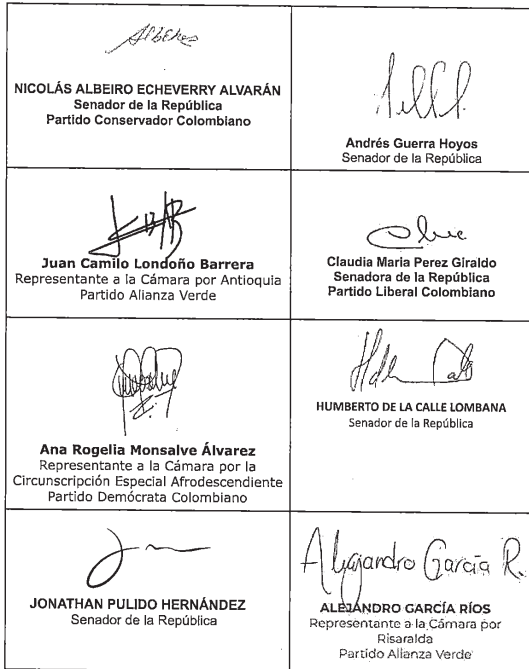 NICOLÁS ALBEIRO ECHEVERRY ALVARÁN
Senador de la República
Partido Conservador Colombiano
Andrés Guerra Hoyos
Senador de la República
Juan Camilo Londoño Barrera
Representante a la Cámara por Antioquia
Partido Alianza Verde
Claudia Maria Perez Giraldo
Senadora de la República
Partido Liberal Colombiano
Ana Rogelia Monsalve Álvarez
Representante a la Cámara por la
Circunscripción Especial Afrodescendiente
Partido Demócrata Colombiano
HUMBERTO DE LA CALLE LOMBANA
Senador de la República
JONATHAN PULIDO HERNÁNDEZ
Senador de la República
Alejandro García R.
ALEJANDRO GARCÍA RÍOS
Representante a la Cámara por
Risaralda
Partido Alianza Verde